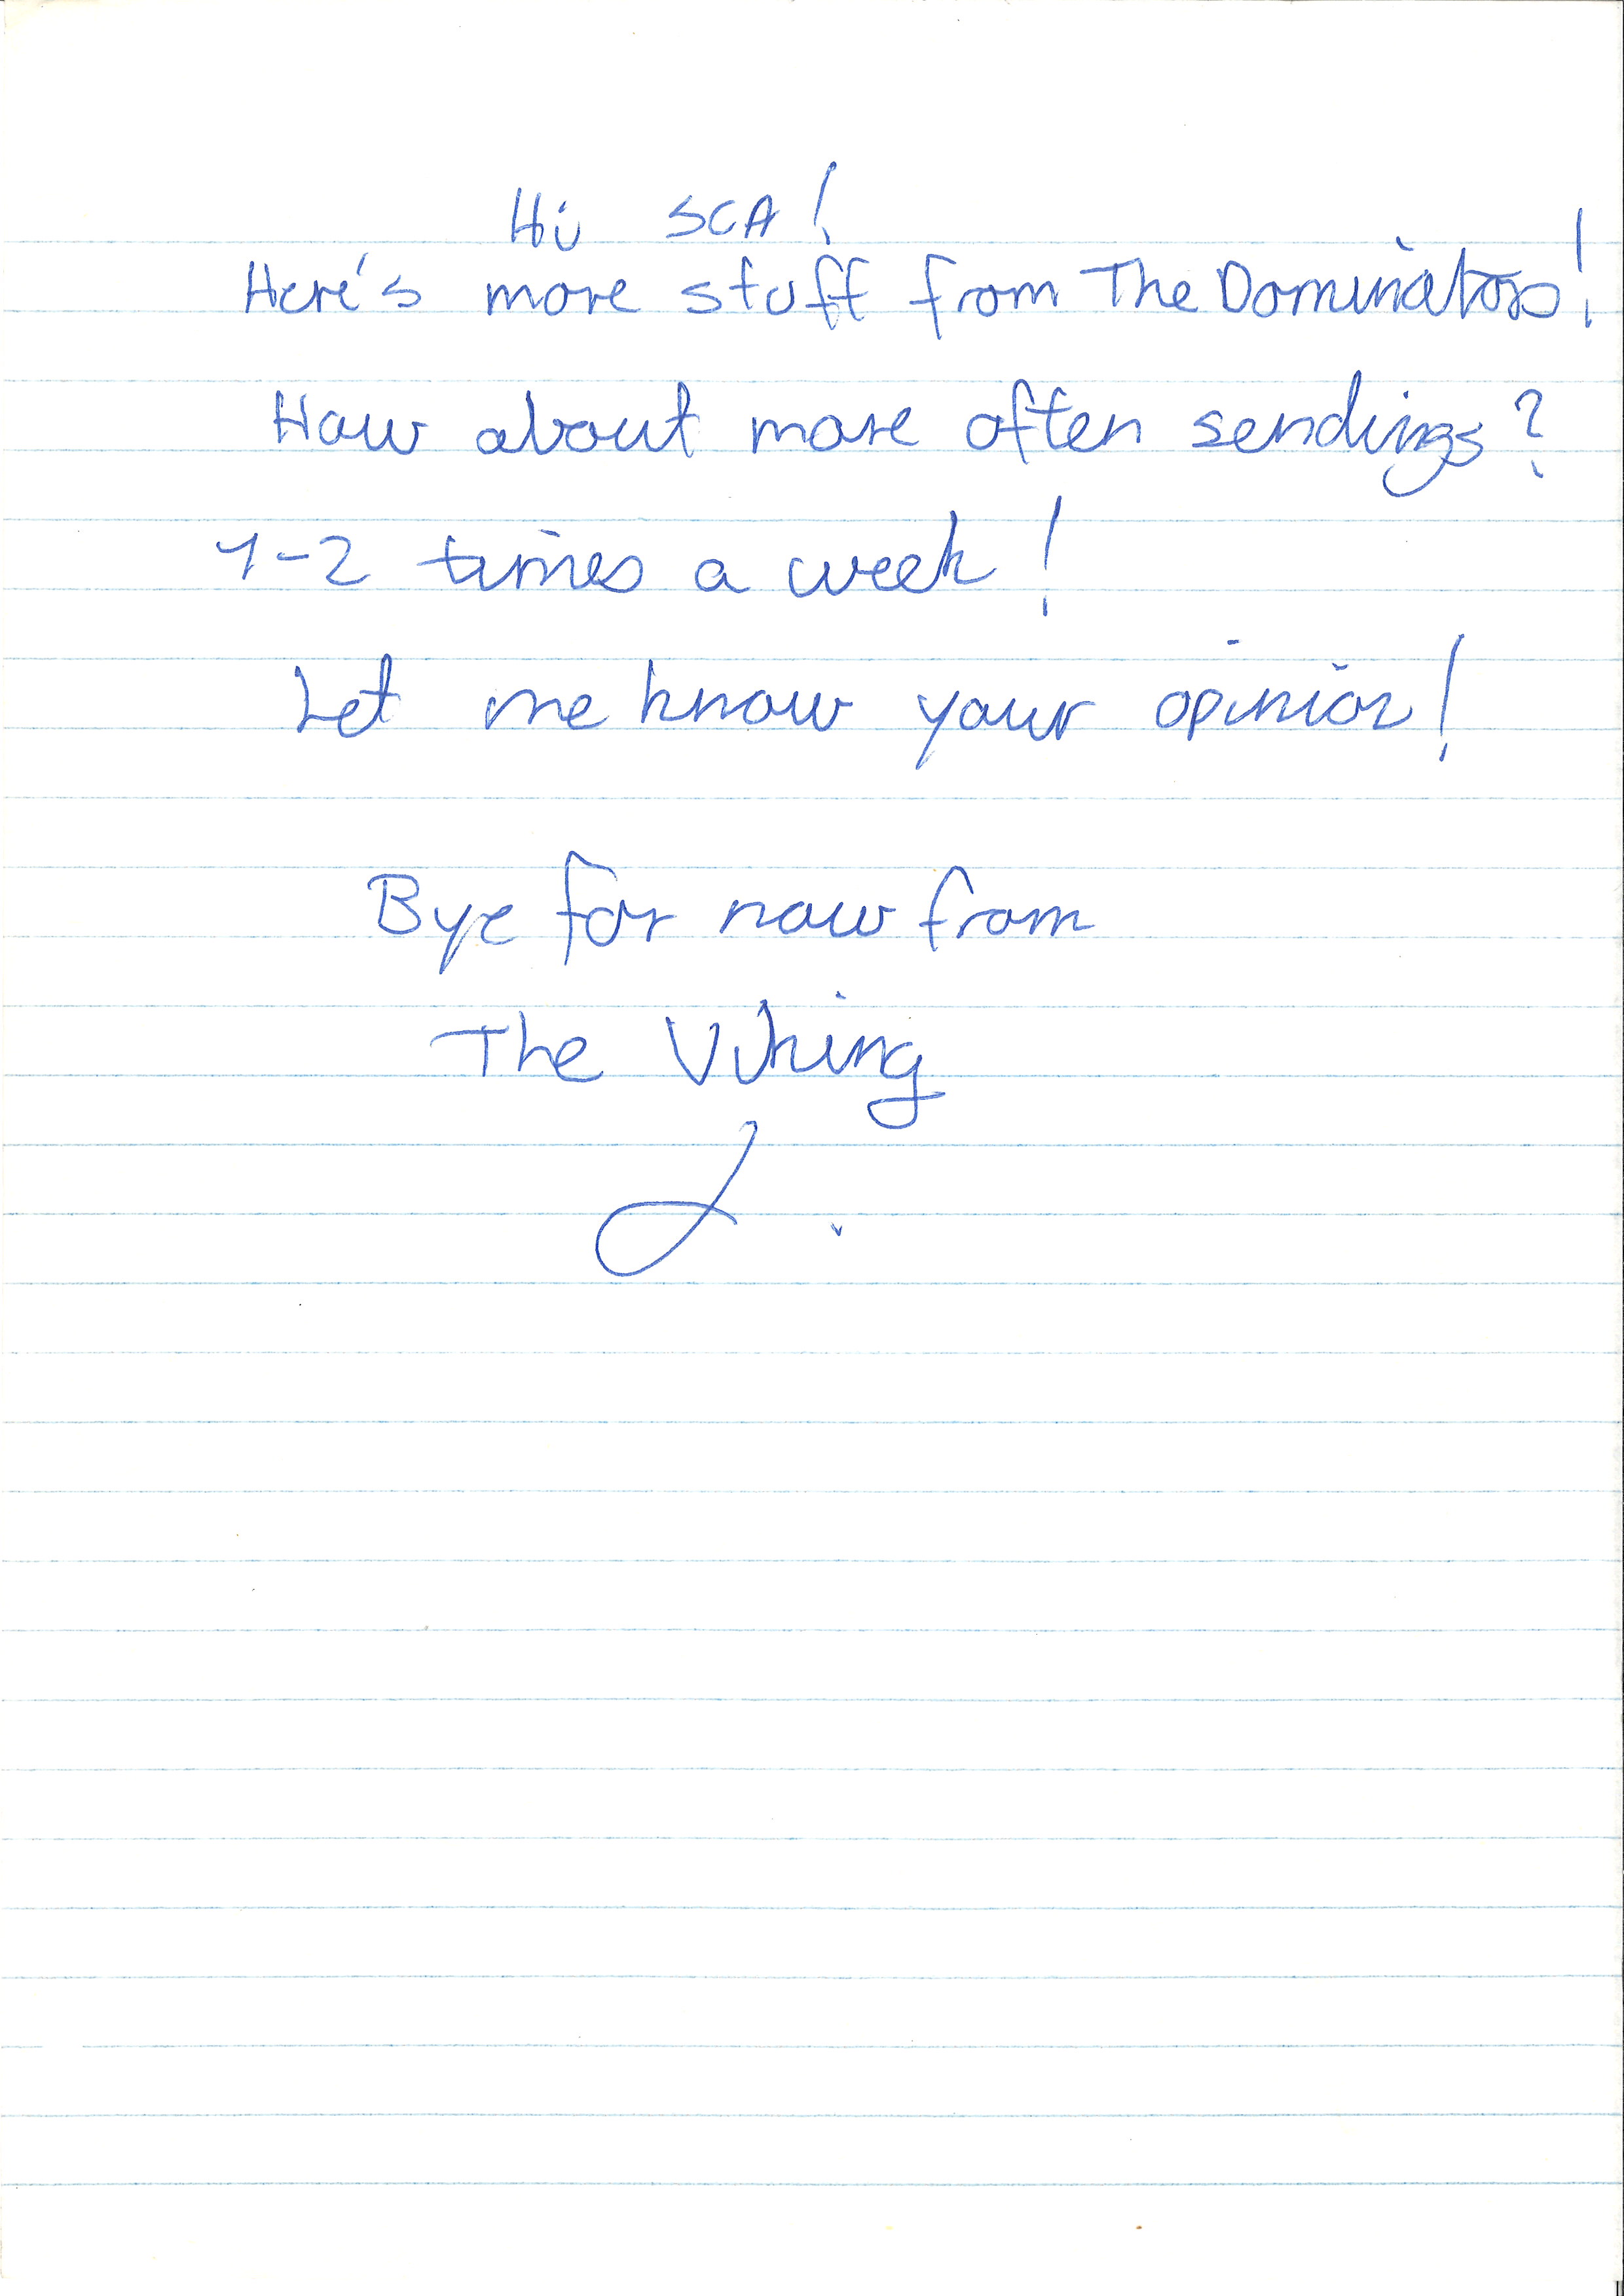 Hi SCA!
Here's more stuff from The Dominators!
How about more often sendings?
1-2 times a week!
Let me know your opinion!
Bye for now from
The Viking